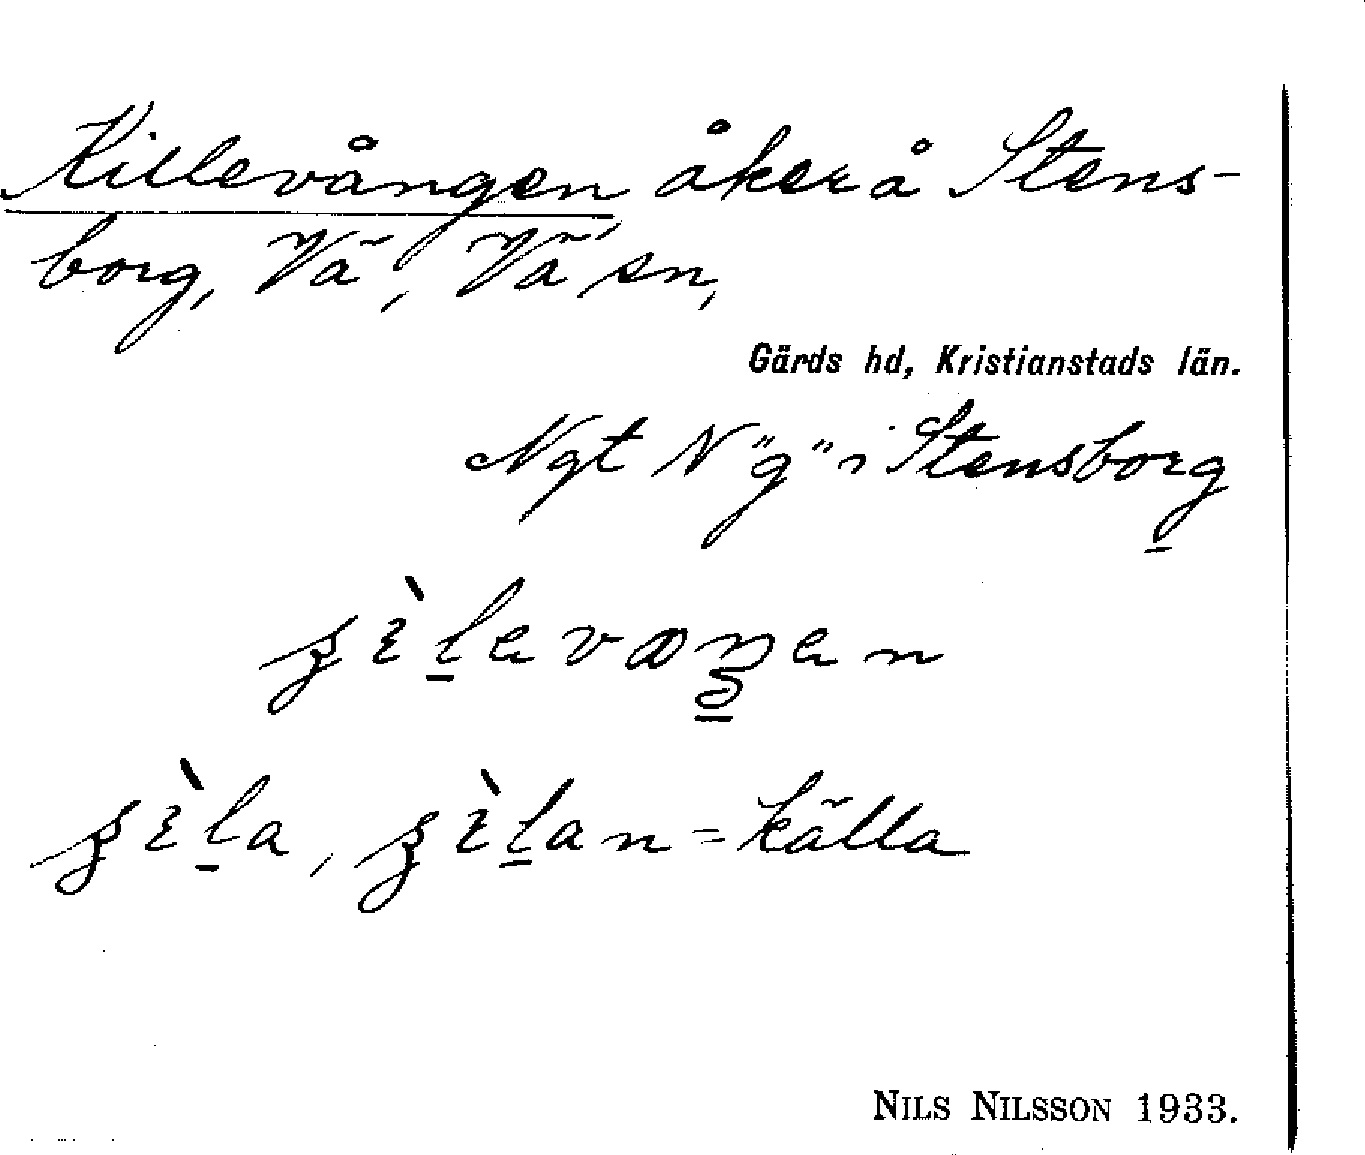 Killevången, åker å Stens-
borg, Vä, Vä sn,
Gärds hd, Kristianstads län.
Ngt N "g" i Stensborg
= källa
NILS NILSSON 1933.